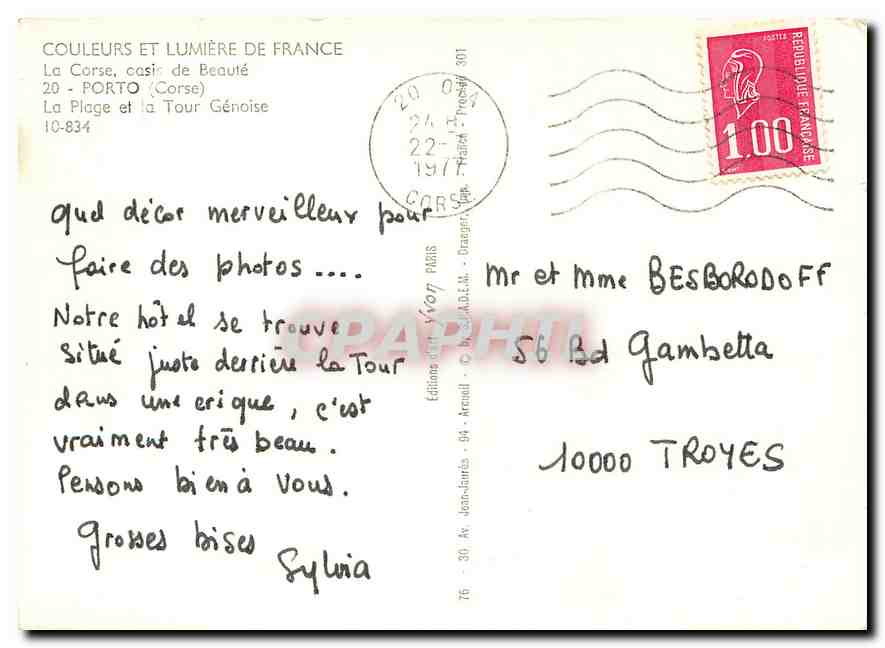 COULEURS ET LUMIÈRE DE FRANCE
La Corse, oasis de Beauté
20 - PORTO (Corse)
La Plage et la Tour Génoise
10-834
Quel décor merveilleux pour
faire des photos....
Notre hôtel se trouve
situé juste derrière la Tour
dans une crique, c'est
vraiment très beau.
Pensons bien à vous.
Grosses bises
Sylvia
Editions d'art Yvon PARIS
76 - 30 Av. Jean-Jaurès - 94 - Arcueil - © by S.P.A.D.E.M. - Draeger, Imp. France - Procédé 301
20
22-
1977
CORSE
POSTES
REPUBLIQUE FRANÇAISE
1,00
Mr et Mme BESBORODOFF
56 Bd Gambetta
10000 TROYES
CPAPHIL